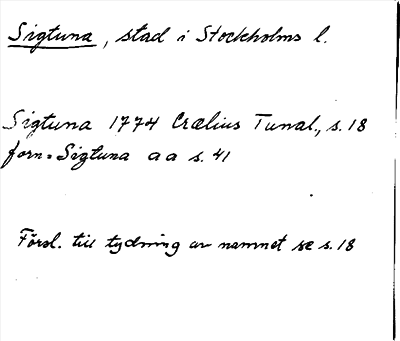 Sigtuna, stad i Stockholms l.
Sigtuna 1774 Crælius Tunal., s. 18
forn-Sigtuna a a s. 41
Försl. till tydning av namnet se s. 18